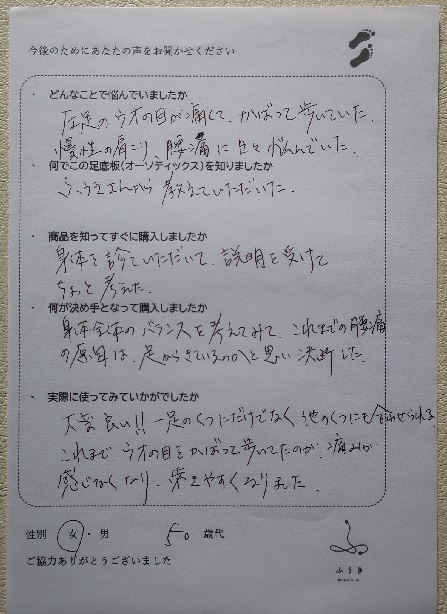 今後のためにあなたの声をお聞かせください
・ どんなことで悩んでいましたか
左足のウオの目が痛くて、かばって歩いていた。
慢性の肩こり、腰痛に日々悩んでいた。
・ 何でこの足底板(オーソティックス)を知りましたか
ふうきさんから教えていただいた。
・ 商品を知ってすぐに購入しましたか
身体を診ていただいて、説明を受けて
ちょっと考えた。
・ 何が決め手となって購入しましたか
身体全体のバランスを考えてみて、これまでの腰痛
の原因は、足からきているのかと思い決断した。
・ 実際に使ってみていかがでしたか
大変良い!! 一足のくつにだけでなく他のくつにも合わせられる
これまでウオの目をかばって歩いてたのが、痛みが
感じなくなり、歩きやすくなりました。
性別 女・男 50 歳代
ご協力ありがとうございました
ふうき